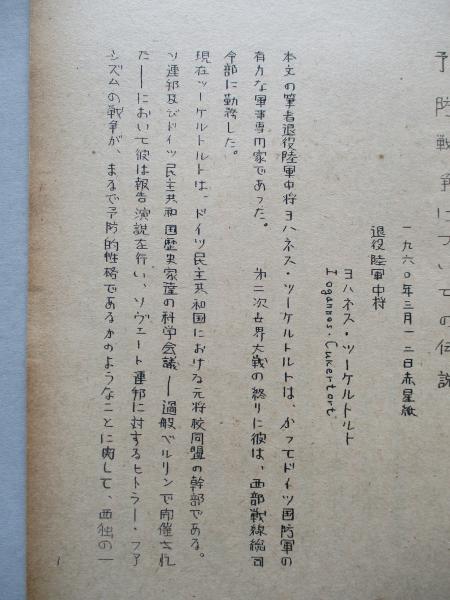 予陸戦争についての伝説
一九六〇年三月一二日赤星紙
退役陸軍中将
ヨハネス・ツーケルトルト
Iogannes.Cukertort.
本文の筆者退役陸軍中将ヨハネス・ツーケルトルトは、かってドイツ国防軍の
有力な軍事専門家であった。 第二次世界大戦の終りに彼は、西部戦線総司
令部に勤務した。
現在ツーケルトルトは、ドイツ民主共和国における元将校同盟の幹部である。
ソ連邦及びドイツ民主共和国歴史家達の科学会議――過般ベルリンで開催され
た――において彼は報告演説を行い、ソヴェート連邦に対するヒトラー・ファ
シズムの戦争が、まるで予防的性格であるかのようなことに関して、西独の一
1